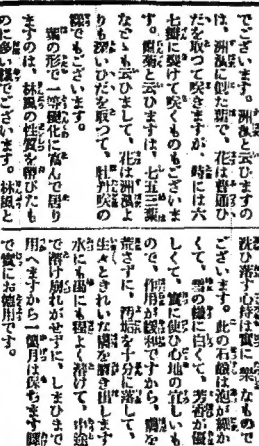 でございます。洲濱と云ひますの
は、洲濱に似た葉で、花は普通ひ
だを取つて咲きますが、時には六
七瓣に裂けて咲くものもございま
す。
菊と云ひますは、七五三葉
なども云ひまして、花は洲濱よ
りも深いひだを取つて、牡丹咲の
樣でもございます。
葉の形で一等變化に富んで居り
ますのは、林風の性質を帶びたも
のに多い樣でございます。林風と
洗ひ落す心持は實に樂なもので
ございます。此の石鹸は泡が細か
くて、雪の樣に白くて、芳香が優
しくて、實に使ひ心地の宜しいも
ので、作用が緩和ですから、膚を
荒さずに、汚垢を十分に落して、
生々ときれいな膚を磨き出します
水にも湯にも程よく溶けて、中途
で溶け崩れがせずに、しまひまで
用へますから一個月は保ちます
で實にお德用です。